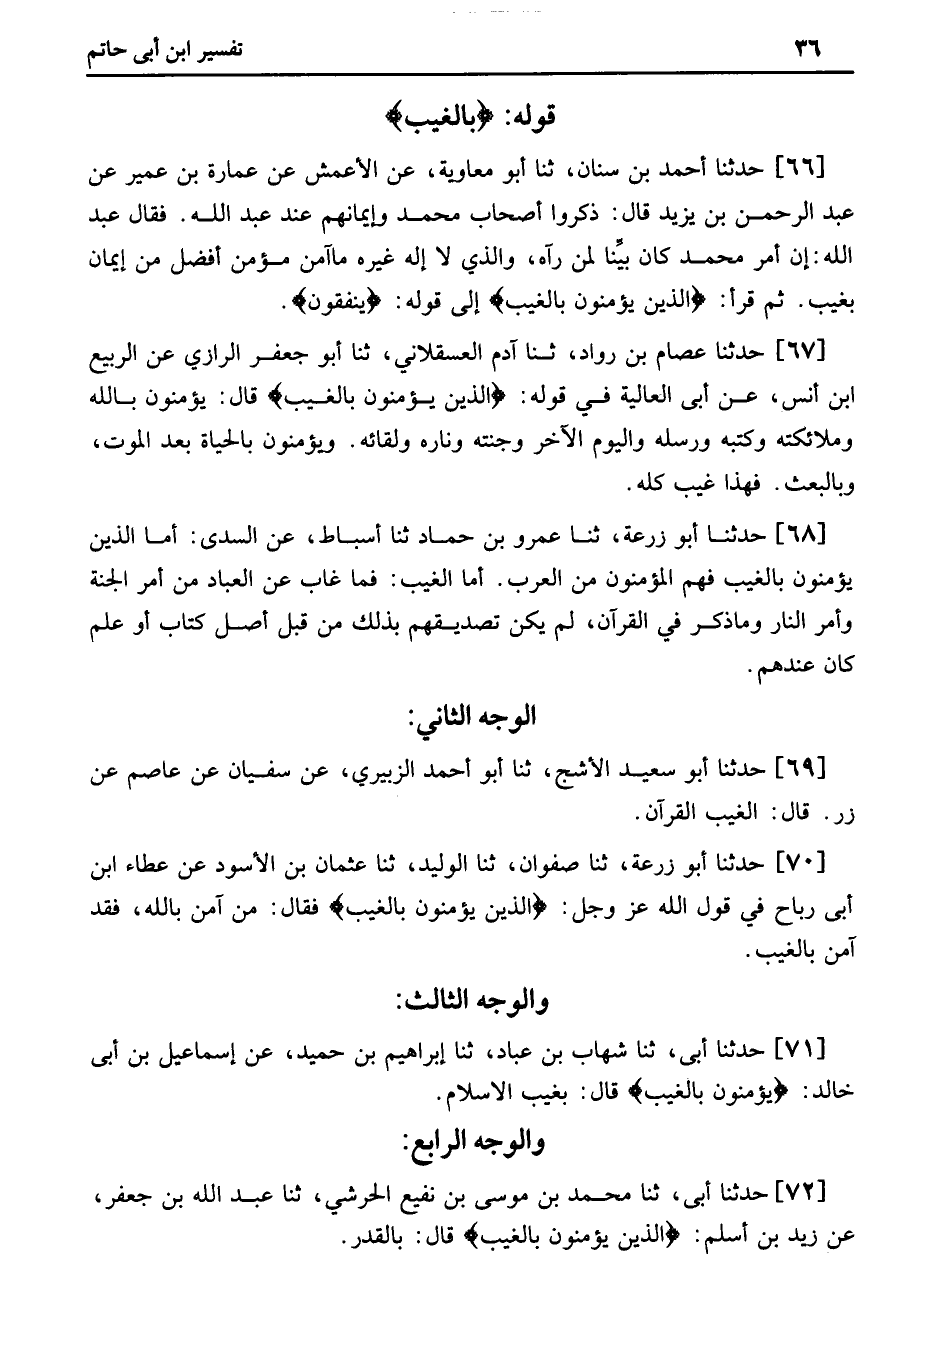 ٣٦ تفسير ابن أبى حاتم
قوله: ﴿بالغيب﴾
[٦٦] حدثنا أحمد بن سنان، ثنا أبو معاوية، عن الأعمش عن عمارة بن عمير عن
عبد الرحمن بن يزيد قال: ذكروا أصحاب محمد وإيمانهم عند عبد الله. فقال عبد
الله:إن أمر محمد كان بيِّنا لمن رآه، والذي لا إله غيره ماآمن مؤمن أفضل من إيمان
بغيب. ثم قرأ: ﴿الذين يؤمنون بالغيب﴾ إلى قوله: ﴿ينفقون﴾.
[٦٧] حدثنا عصام بن رواد، ثنا آدم العسقلاني، ثنا أبو جعفر الرازي عن الربيع
ابن أنس، عن أبى العالية في قوله: ﴿الذين يؤمنون بالغيب﴾ قال: يؤمنون بالله
وملائكته وكتبه ورسله واليوم الآخر وجنته وناره ولقائه. ويؤمنون بالحياة بعد الموت،
وبالبعث. فهذا غيب كله.
[٦٨] حدثنا أبو زرعة، ثنا عمرو بن حماد ثنا أسباط، عن السدى: أما الذين
يؤمنون بالغيب فهم المؤمنون من العرب. أما الغيب: فما غاب عن العباد من أمر الجنة
وأمر النار وماذكر في القرآن، لم يكن تصديقهم بذلك من قبل أصل كتاب أو علم
كان عندهم.
الوجه الثاني:
[٦٩] حدثنا أبو سعيد الأشج، ثنا أبو أحمد الزبيري، عن سفيان عن عاصم عن
زر. قال: الغيب القرآن.
[٧٠] حدثنا أبو زرعة، ثنا صفوان، ثنا الوليد، ثنا عثمان بن الأسود عن عطاء ابن
أبى رباح في قول الله عز وجل: ﴿الذين يؤمنون بالغيب﴾ فقال: من آمن بالله، فقد
آمن بالغيب.
والوجه الثالث:
[٧١] حدثنا أبى، ثنا شهاب بن عباد، ثنا إبراهيم بن حميد، عن إسماعيل بن أبى
خالد: ﴿يؤمنون بالغيب﴾ قال: بغيب الاسلام.
والوجه الرابع:
[٧٢] حدثنا أبى، ثنا محمد بن موسى بن نفيع الحرشي، ثنا عبد الله بن جعفر،
عن زيد بن أسلم: ﴿الذين يؤمنون بالغيب﴾ قال: بالقدر.